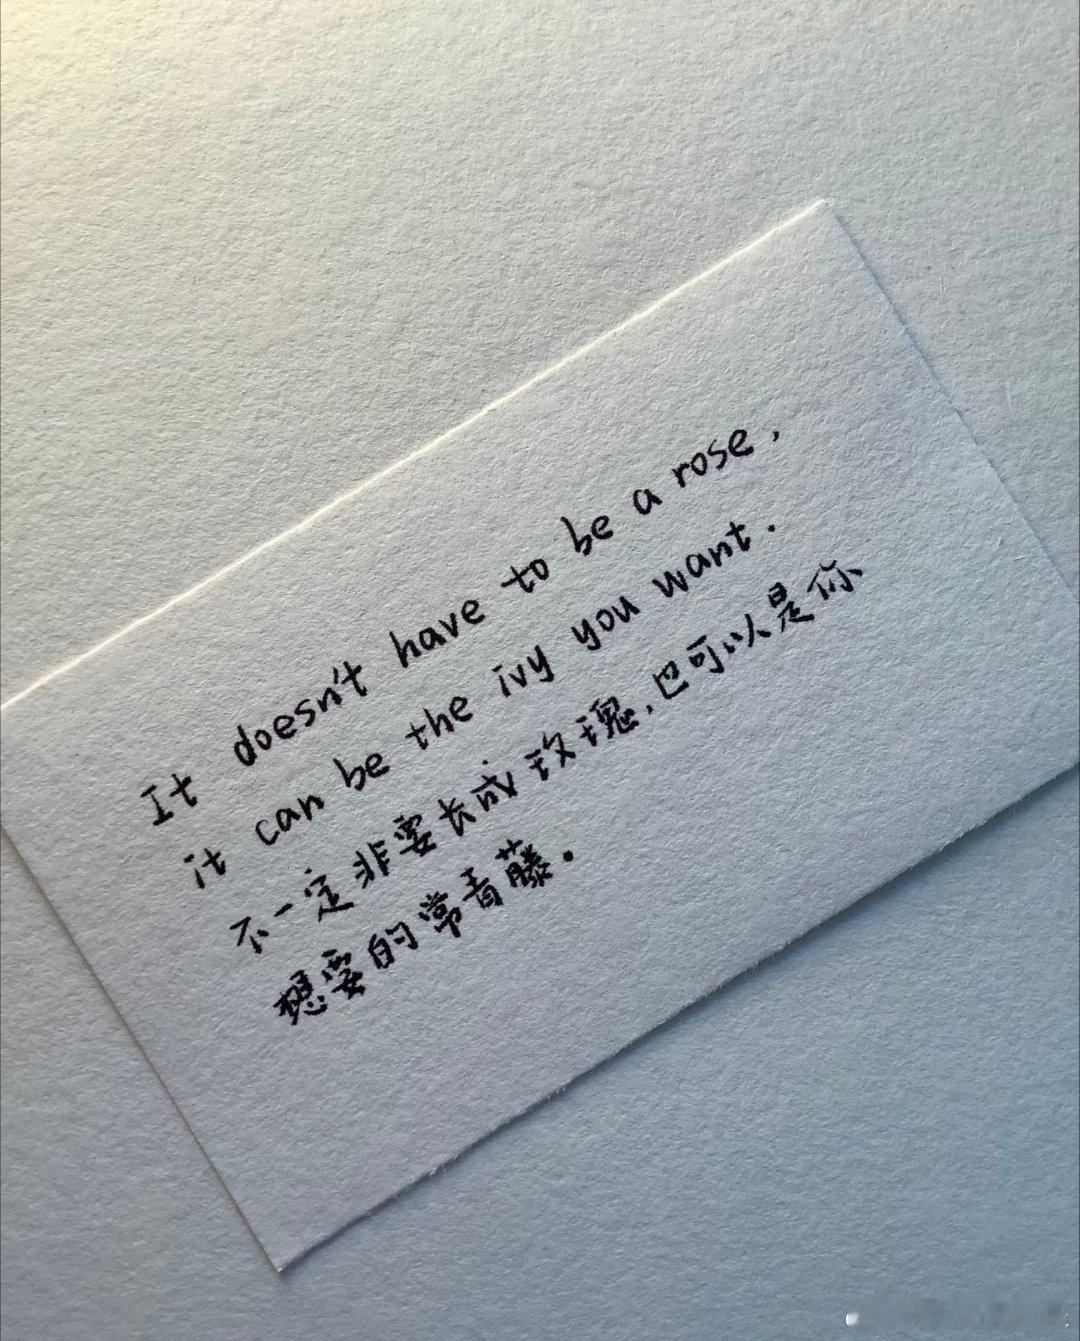 It doesn't have to be a rose,
it can be the ivy you want.
不一定非要长成玫瑰,也可以是你
想要的常青藤.